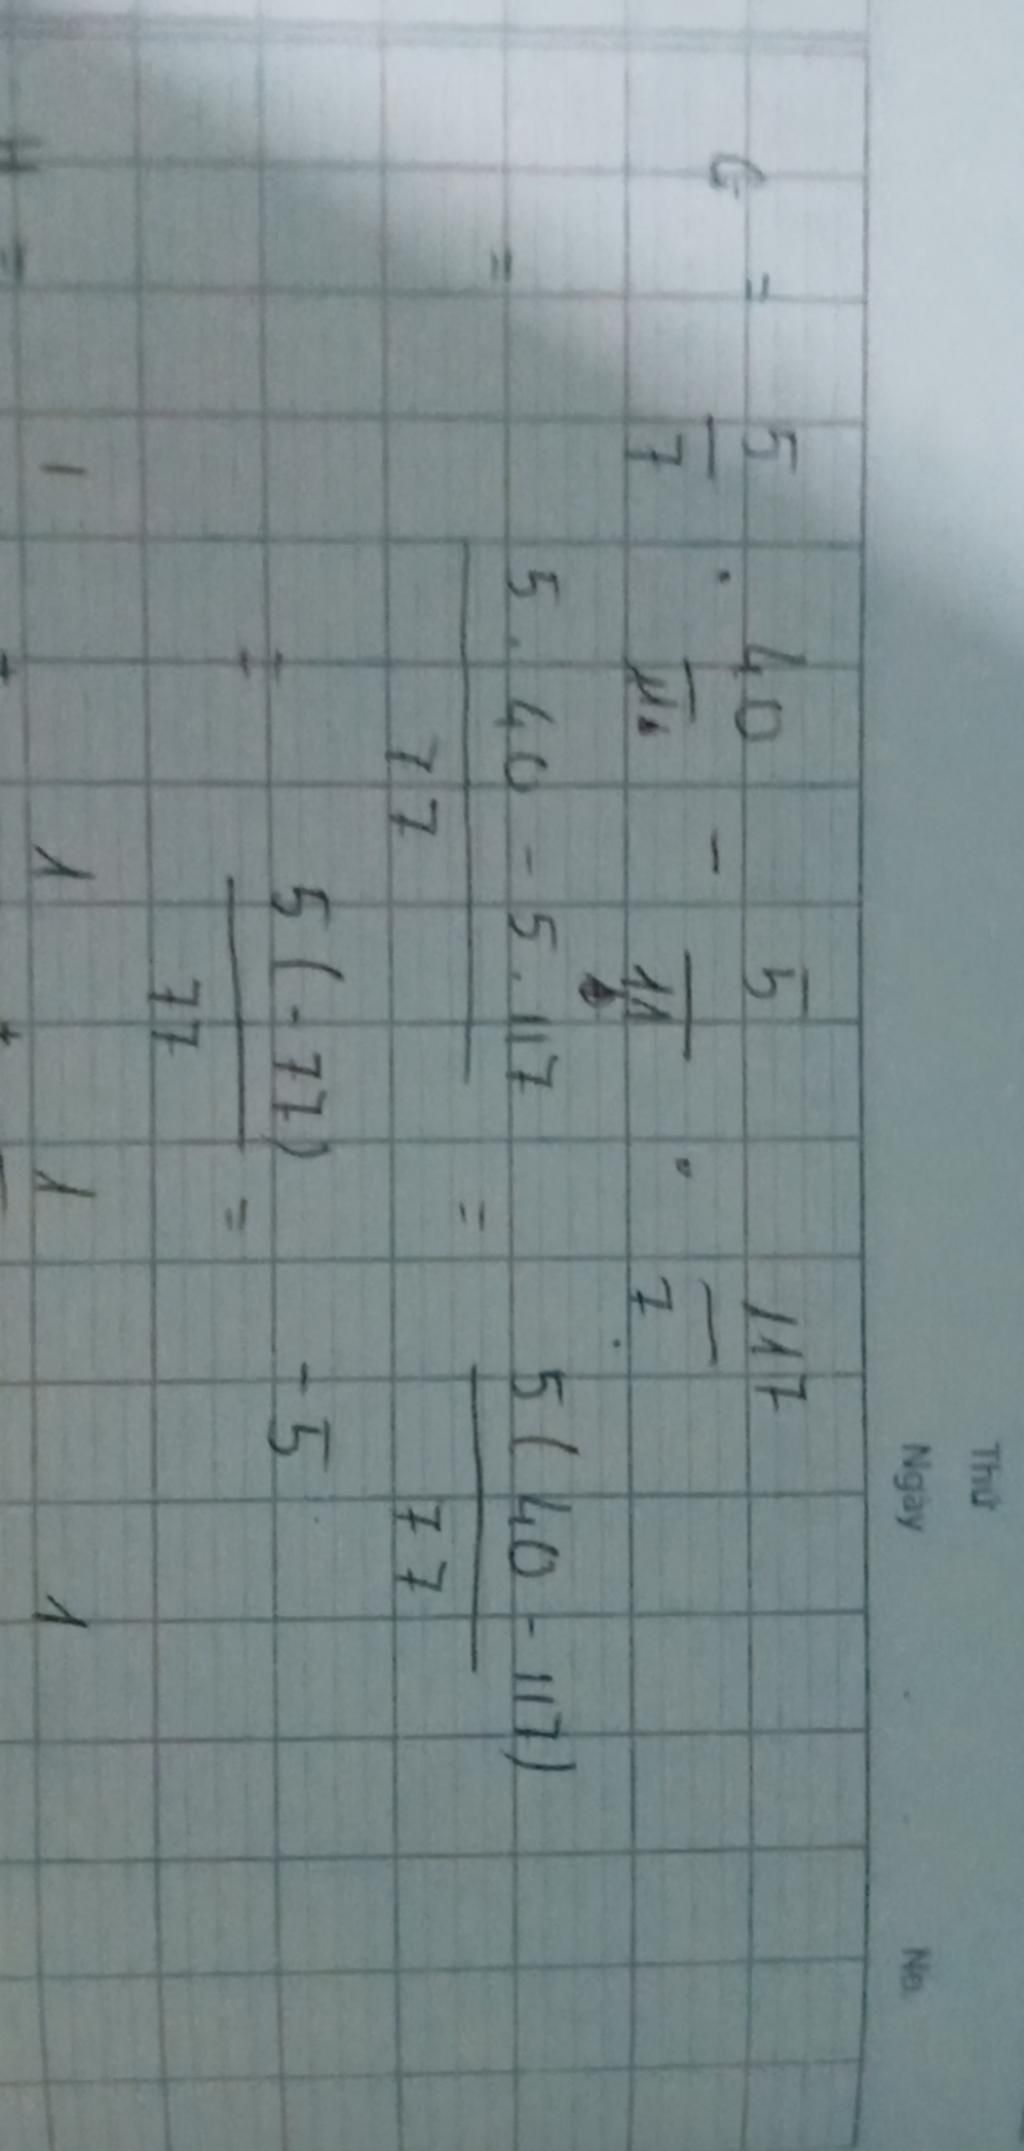 Thứ
Ngày No.
G = 5/7 . 40/11 - 5/11 . 117/7
= 5.40 - 5.117 / 77 = 5(40 - 117) / 77
= 5(-77) / 77 = -5
H = 1 1 1 1